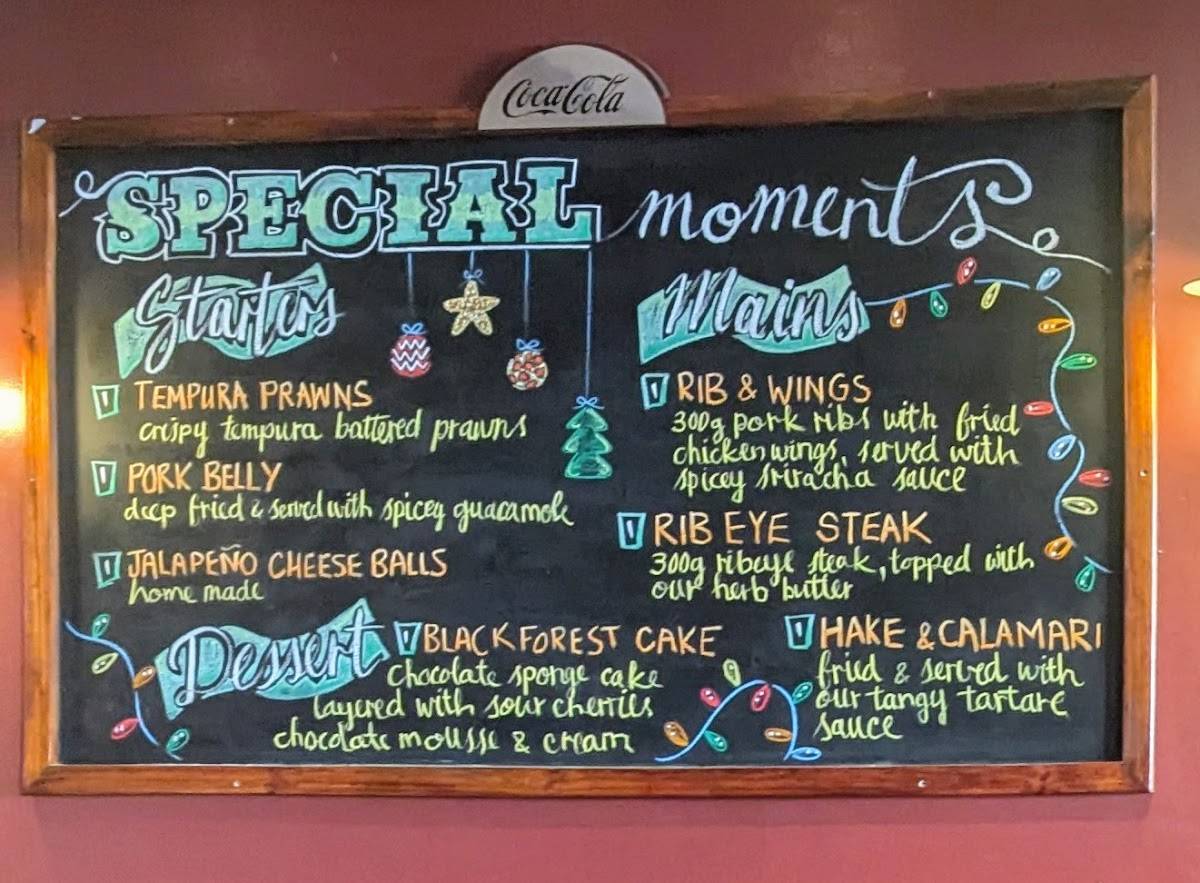 Coca-Cola
SPECIAL moments
Starters
TEMPURA PRAWNS
crispy tempura battered prawns
PORK BELLY
deep fried & served with spicey guacamole
JALAPEÑO CHEESE BALLS
home made
Mains
RIB & WINGS
300g pork ribs with fried
chicken wings, served with
spicey sriracha sauce
RIB EYE STEAK
300g ribeye steak, topped with
our herb butter
HAKE & CALAMARI
fried & served with
our tangy tartare
sauce
Dessert
BLACKFOREST CAKE
chocolate sponge cake
layered with sour cherries
chocolate mousse & cream